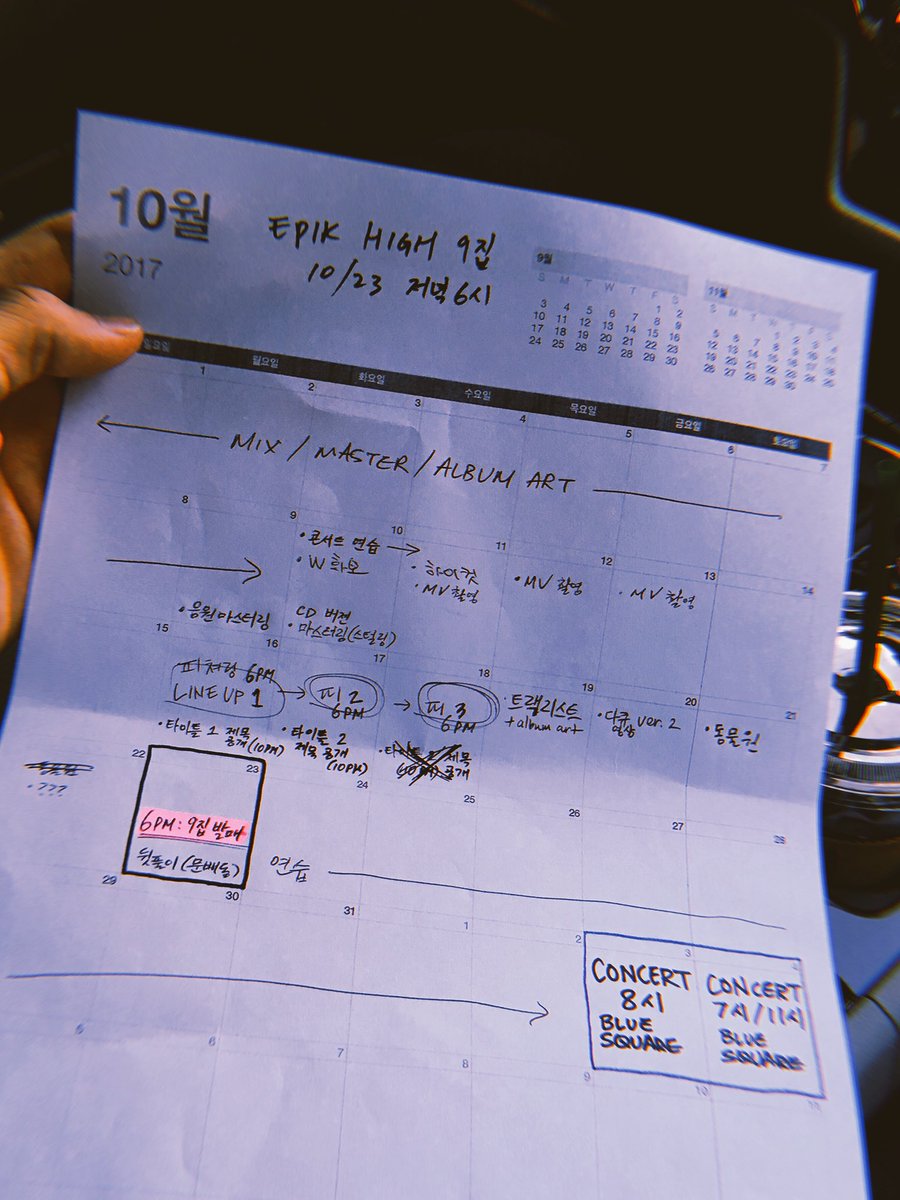 10월
2017
EPIK HIGH 9집
10/23 저녁 6시
9월
S M T W T F S
1 2
3 4 5 6 7 8 9
10 11 12 13 14 15 16
17 18 19 20 21 22 23
24 25 26 27 28 29 30
11월
S M T W T F S
1 2 3 4
5 6 7 8 9 10 11
12 13 14 15 16 17 18
19 20 21 22 23 24 25
26 27 28 29 30
일요일 월요일 화요일 수요일 목요일 금요일 토요일
1 2 3 4 5 6 7
MIX / MASTER / ALBUM ART
8 9 10 11 12 13 14
• 콘서트 연습
• W 화보
• 하이컷
• MV 촬영
• MV 촬영
• MV 촬영
• 음원 마스터링
CD 버전
• 마스터링(스털링)
15 16 17 18 19 20 21
피처링 6PM
LINE UP 1
피 2
6PM
피 3
6PM
• 트랙리스트
+ album art
• 다큐 ver. 2
영상
• 동물원
• 타이틀 1 제목
공개(10PM)
• 타이틀 2
제목 공개
(10PM)
제목
공개
22 23 24 25 26 27 28
• ???
6PM: 9집 발매
뒷풀이(문배동)
연습
29 30 31 1 2 3 4
CONCERT
8시
BLUE
SQUARE
CONCERT
7시/11시
BLUE
SQUARE
5 6 7 8 9 10 11